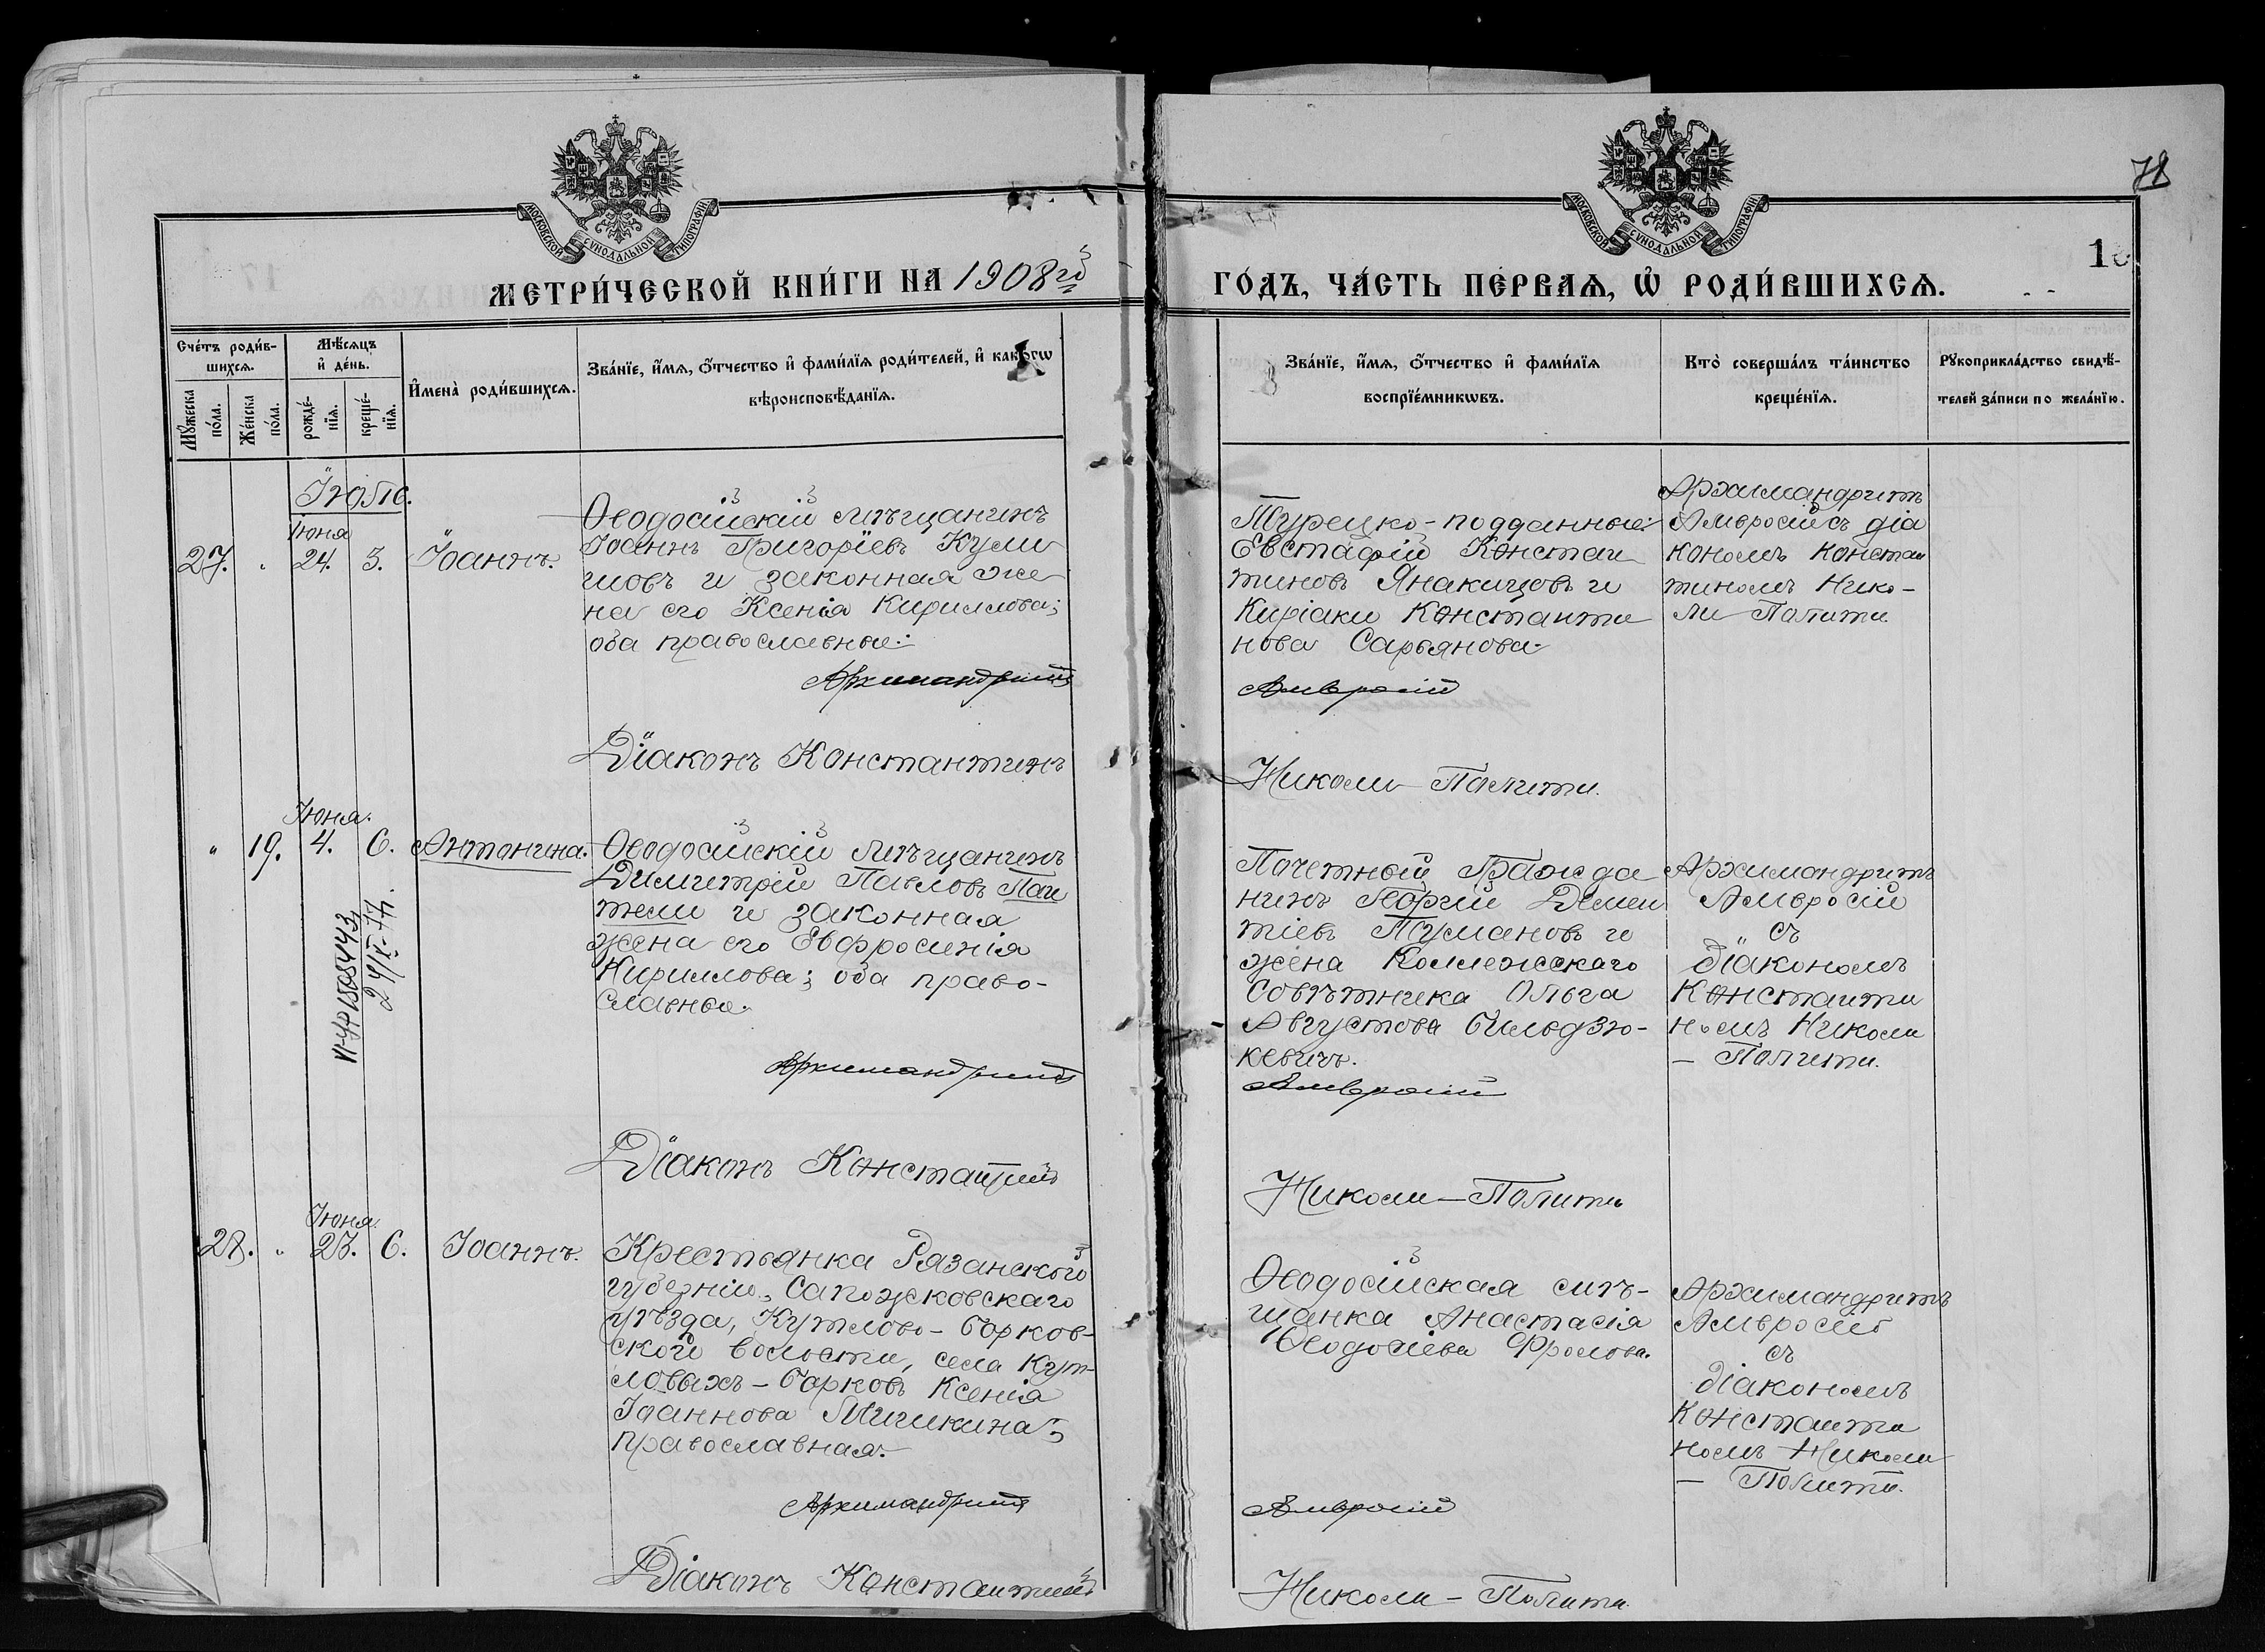 МОСКОВСКОЙ СѴНОДАЛЬНОЙ ТИПОГРАФІИ
МЕТРИ́ЧЕСКОЙ КНИ́ГИ НА 1908й
Сче́тъ роди́в-
шихсѧ.
Мꙋ́жеска по́ла.
Же́нска по́ла.
Мѣ́сѧцъ
и҆ де́нь.
рожде́-
нїѧ.
креще́-
нїѧ.
И҆мена̀ роди́вшихсѧ.
Зва́нїе, и҆́мѧ, ѻ҆́тчество и҆ фами́лїѧ роди́телей, и҆ какогѡ
вѣроисповѣ́данїѧ.
Іюль.
27.
Іюня
24.
3.
Іоаннъ.
Ѳеодосійскій мѣщанинъ
Іоаннъ Григоріевъ
и законная же
на его Ксенія Кириллова;
оба православные.
Архимандритъ
Діаконъ Константинъ
19.
Іюня.
4.
6.
Антонина.
Ѳеодосійскій мѣщанинъ
Димитрій Павловъ
и законная
жена его Евфросинія
Кириллова; оба право-
славные.
Архимандритъ
Діаконъ Константинъ
28.
Іюня.
6.
Іоаннъ.
Крестьянка Рязанской
губерніи, Сапожковскаго
уѣзда, Кутлово-Борков-
ской волости, села Кут-
ловыхъ-Борковъ Ксенія
Іоаннова Мишкина;
православная.
Архимандритъ
Діаконъ Константинъ
78
МОСКОВСКОЙ СѴНОДАЛЬНОЙ ТИПОГРАФІИ
ГО́ДЪ, ЧА́СТЬ ПЕ́РВАѦ, Ѡ҆ РОДИ́ВШИХСѦ.
Зва́нїе, и҆́мѧ, ѻ҆́тчество и҆ фами́лїѧ
воспрїе́мникѡвъ.
Кто̀ соверша́лъ та́инство
креще́нїѧ.
Рꙋкоприкла́дство свидѣ́-
телей за́писи по жела́нїю.
Турецко-подданные:
Евстафій Констан
тиновъ Янакицовъ и
Киріаки Константи
нова Сарьянова.
Архимандритъ
Амвросій съ діа
кономъ Констан
тиномъ Нико-
ли-Полити.
Амвросій
Николи-Полити.
Почетный Гражда
нинъ Георгій Демен
тіевъ Тумановъ и
жена Коллежскаго
Совѣтника Ольга
Августова Гильдзю-
кевичъ.
Архимандритъ
Амвросій
съ
Діакономъ
Константи
номъ Николи
-Полити.
Амвросій
Николи-Полити
Ѳеодосійская мѣ-
щанка Анастасія
Ѳеодосіева Фролова.
Архимандритъ
Амвросій
съ
діакономъ
Константи
номъ Николи
- Полити.
Амвросій
Николи-Полити.